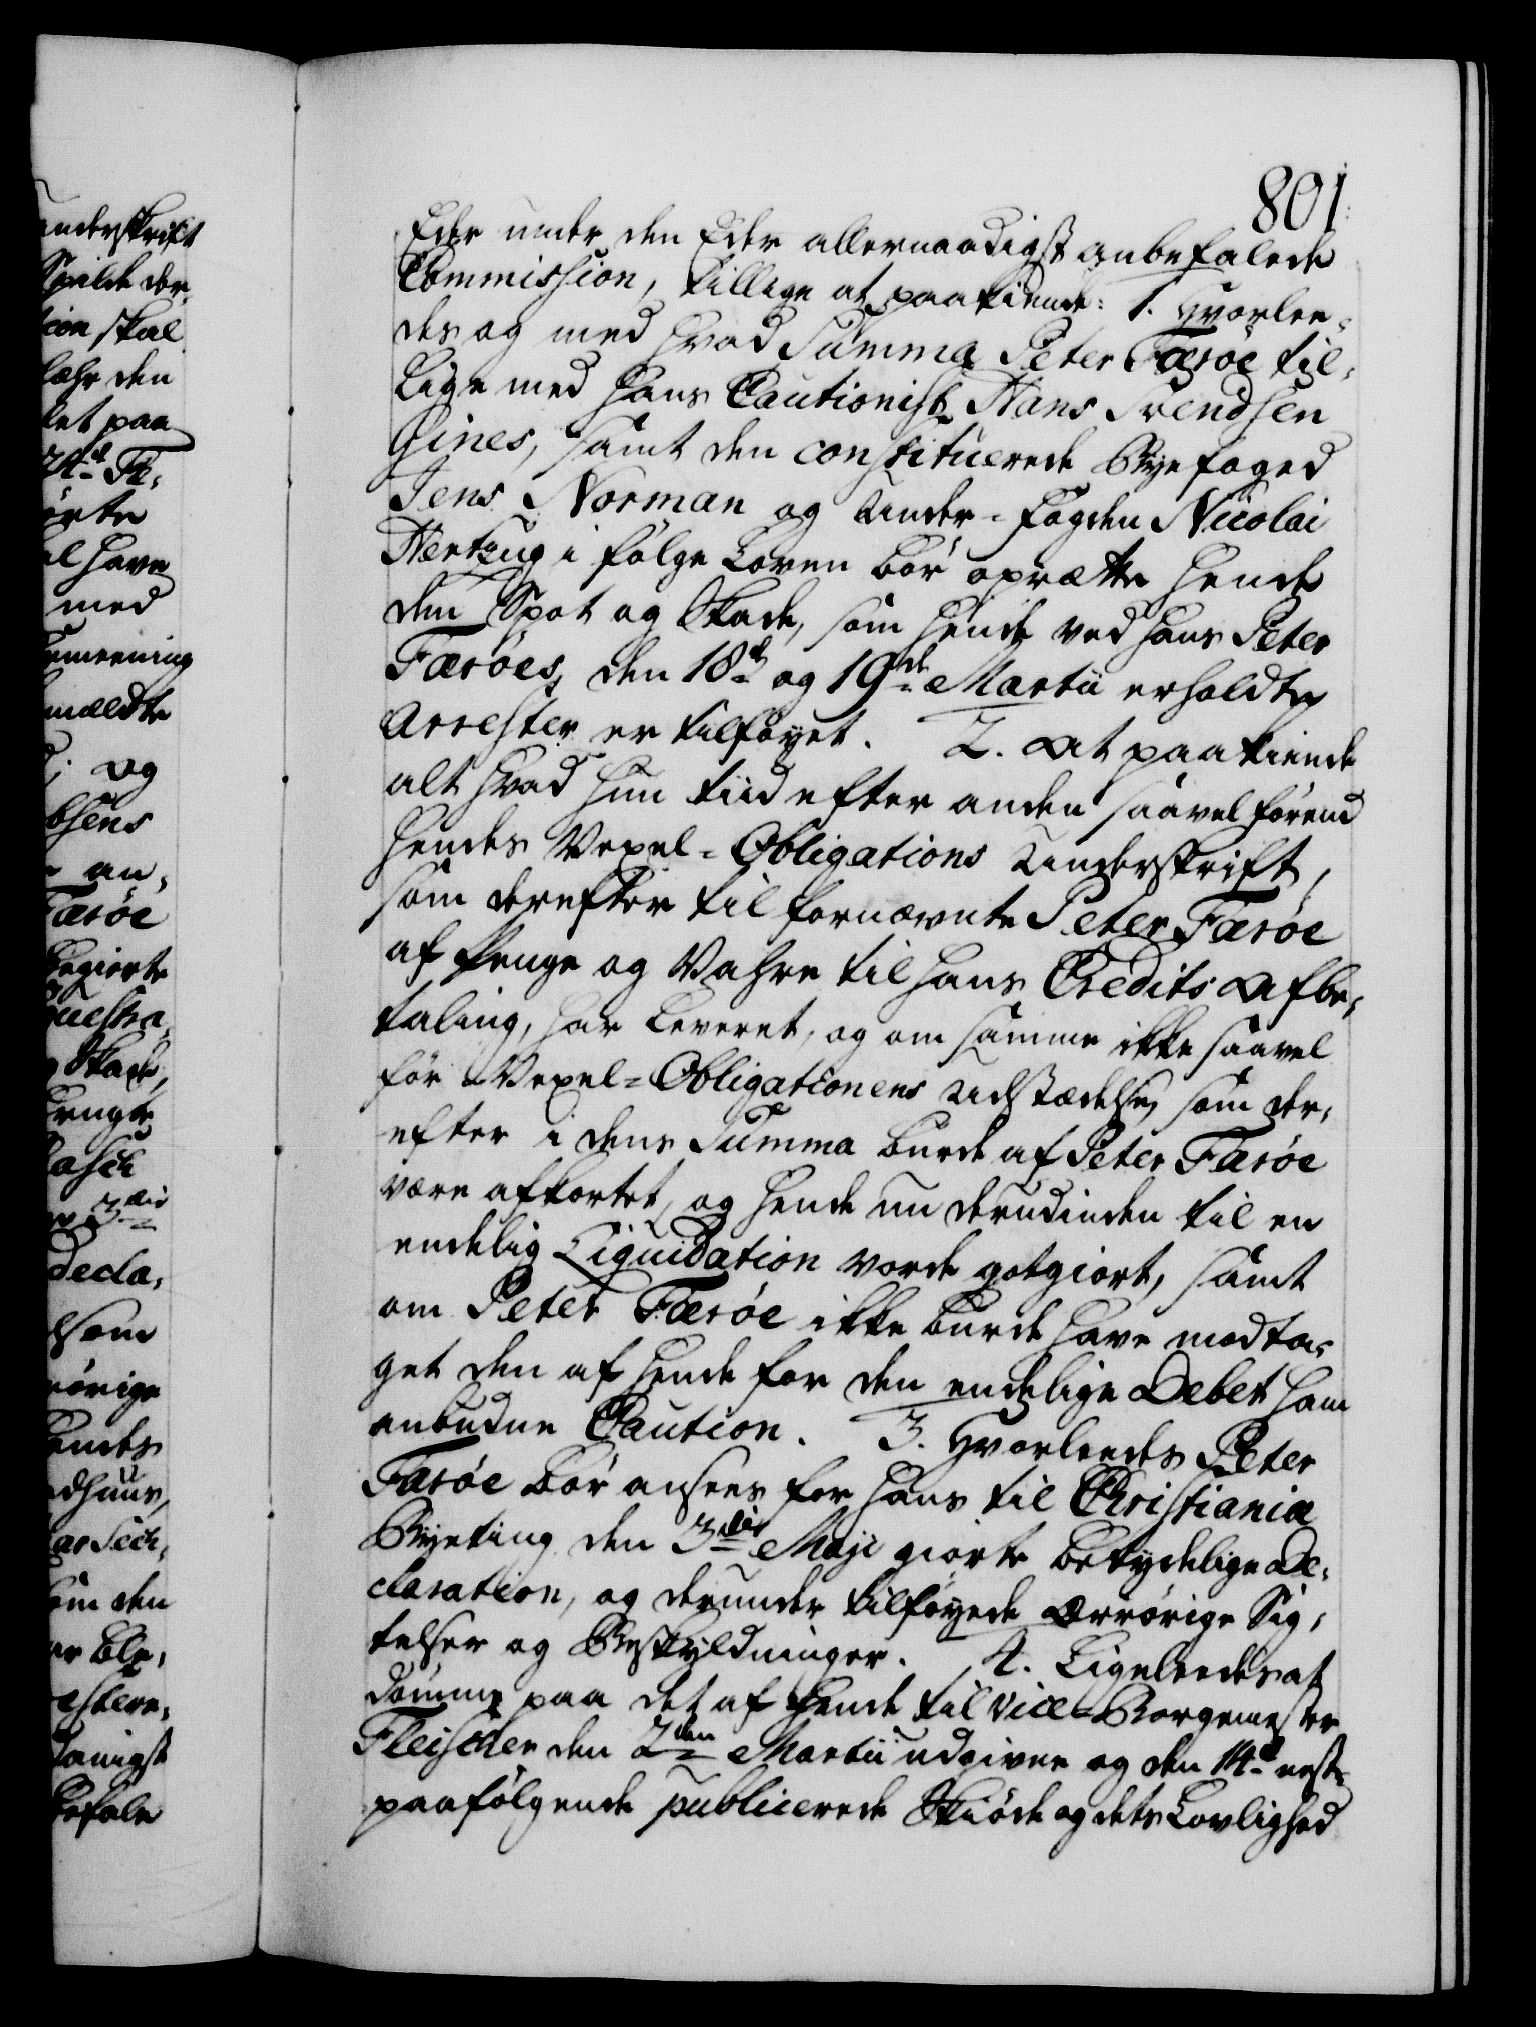 801.
Eder under den Eder allernaadigst anbefalede
Commission, tillige at paakiende: 1. Hvorlee-
des og med hvad Summa Peter Færöe til-
lige med hans Cautionist Hans Svendsen
Gines, samt den constituerede Byefoged
Jens Norman og Under-Fogden Nicolai
Hertzug i fölge Loven bör oprætte hende
den Spot og Skade, som hende ved hans Peter
Færöes, den 18de og 19de Martii erholdte
Arrester er tilföyet. 2. At paakiende
alt hvad hun tiid efter anden saavel förend
hendes Vexel-Obligations Underskrift,
som derefter til fornævnte Peter Færöe
af Penge og Vahre til hans Credits Afbe-
taling, har leveret, og om samme ikke saavel
för Vexel-Obligationens Udstædelse, som der-
efter i dens Summa burde af Peter Færöe
være afkortet, og hende nu derudinden til en
endelig Liquidation vorde gotgiort, samt
om Peter Færöe ikke burde have modta-
get den af hende for den endelige Debet ham
anbudne Caution. 3. Hvorleedes Peter
Færöe bör ansees for hans til Christiania
Byeting den 3die Maji giorte betydelige De-
claration, og derunder tilföyede Ærrörige Sig-
telser og Beskyldninger. 4. Ligeleedes at
dömme paa det af hende til Vice-Borgemester
Fleischer den 2den Martii udgivne og den 14de nest-
paafölgende publicerede Skiöde og dets Lovlighed
underskrift
skal
den
let paa
24de Fe-
have
med
meldte
og
an-
Færöe
Skade,
3die
Decla-
som
hendes
den